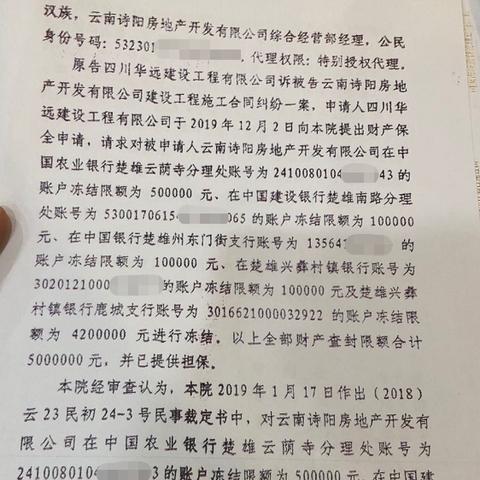 汉族，云南诗阳房地产开发有限公司综合经营部经理，公民
身份号码：532301，代理权限：特别授权代理。
原告四川华远建设工程有限公司诉被告云南诗阳房地
产开发有限公司建设工程施工合同纠纷一案，申请人四川华
远建设工程有限公司于2019年12月2日向本院提出财产保
全申请，请求对被申请人云南诗阳房地产开发有限公司在中
国农业银行楚雄云荫寺分理处账号为2410080104 43的
的账户冻结限额为500000元、在中国建设银行楚雄南路分理
处账号为5300170615 065的账户冻结限额为100000
元、在中国银行楚雄州东门街支行账号为13564 的
账户冻结限额为100000元、在楚雄兴彝村镇银行账号为
3020121000 的账户冻结限额为100000元及楚雄兴彝
村镇银行鹿城支行账号为3016621000032922的账户冻结限
额为4200000元进行冻结。以上全部财产查封限额合计
5000000元，并已提供担保。
本院经审查认为，本院2019年1月17日作出（2018）
云23民初24-3号民事裁定书中，对云南诗阳房地产开发有
限公司在中国农业银行楚雄云荫寺分理处账号为
2410080104 3的账户冻结限额为500000元、在中国建